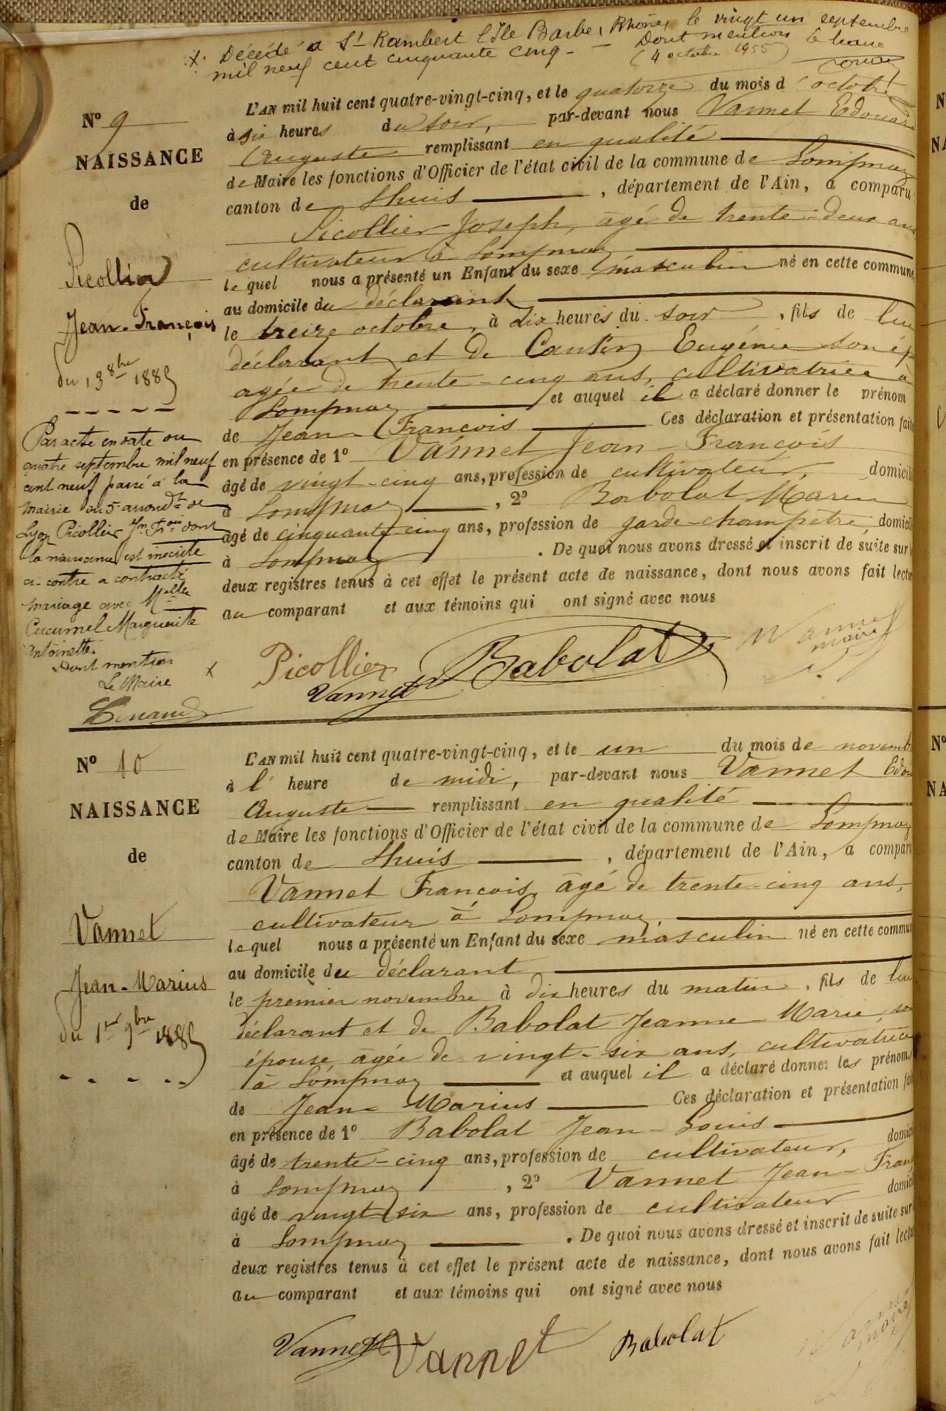 + Décédé à St Rambert l'Ile Barbe, Rhône, le vingt un septembre
mil neuf cent cinquante cinq. — Dont mention
(4 octobre 1955)
N° 9
NAISSANCE
de
Picollier
Jean-François
du 13 8bre 1885
Par acte en date du
quatre septembre mil neuf
cent neuf passé à la
mairie du 5e arrondt de
Lyon Picollier Jn Fois dont
la naissance est inscrite
ci-contre a contracté
mariage avec Melle
Cucumel Marguerite
Antoinette.
Dont mention
Le Maire
L'AN mil huit cent quatre-vingt-cinq, et le quatorze du mois d'octobre
à six heures du soir, par-devant nous Vannet Edouard
Auguste remplissant en qualité
de Maire les fonctions d'Officier de l'état civil de la commune de Lompnaz
canton de Lhuis, département de l'Ain, a comparu
Picollier Joseph, âgé de trente-deux ans
cultivateur à Lompnaz
lequel nous a présenté un Enfant du sexe masculin né en cette commune
au domicile du déclarant
le treize octobre, à dix heures du soir, fils de lui
déclarant et de Eugénie son ép
agée de trente-cinq ans, cultivatrice à
Lompnaz et auquel il a déclaré donner le prénom
de Jean-François Ces déclaration et présentation fait
en présence de 1° Vannet Jean-François
âgé de vingt-cinq ans, profession de cultivateur, domicil
à Lompnaz, 2° Babolat Marin
âgé de cinquante-cinq ans, profession de garde-champêtre, domicil
à Lompnaz. De quoi nous avons dressé et inscrit de suite sur l
deux registres tenus à cet effet le présent acte de naissance, dont nous avons fait lectu
au comparant et aux témoins qui ont signé avec nous
Picollier Babolat Vannet
maire
Vannet
N° 10
NAISSANCE
de
Vannet
Jean-Marius
du 1er 9bre 1885
L'AN mil huit cent quatre-vingt-cinq, et le un du mois de novemb
à l'heure de midi, par-devant nous Vannet Edou
Auguste remplissant en qualité
de Maire les fonctions d'Officier de l'état civil de la commune de Lompnaz
canton de Lhuis, département de l'Ain, a compar
Vannet François, âgé de trente-cinq ans,
cultivateur à Lompnaz,
lequel nous a présenté un Enfant du sexe masculin né en cette commu
au domicile du déclarant
le premier novembre à dix heures du matin, fils de lui
déclarant et de Babolat Jeanne Marie, son
épouse âgée de vingt-six ans, cultivatrice
à Lompnaz et auquel il a déclaré donner les prénoms
de Jean-Marius Ces déclaration et présentation fai
en présence de 1° Babolat Jean-Louis
âgé de trente-cinq ans, profession de cultivateur, domic
à Lompnaz, 2° Vannet Jean-Franç
âgé de vingt-six ans, profession de cultivateur domic
à Lompnaz. De quoi nous avons dressé et inscrit de suite sur
deux registres tenus à cet effet le présent acte de naissance, dont nous avons fait lectu
au comparant et aux témoins qui ont signé avec nous
Vannet Vannet Babolat